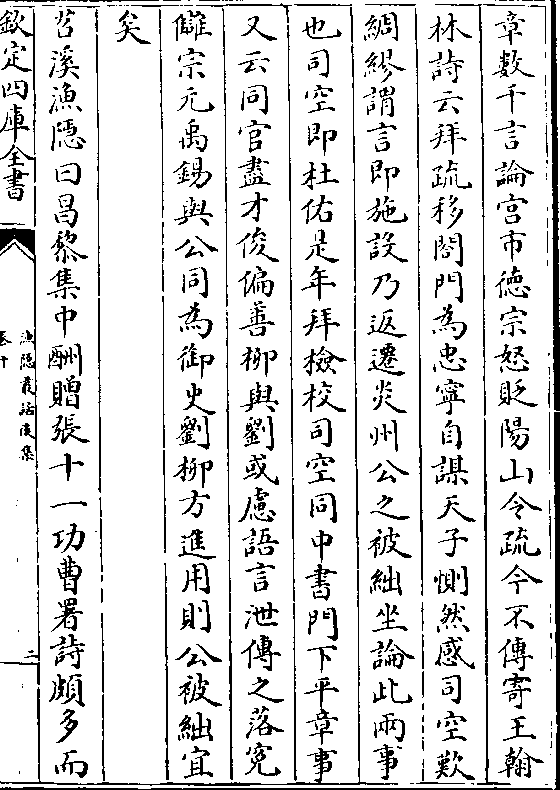 章數千言論宫市德宗怒貶陽山令疏今不傳寄王翰
林詩云拜疏移閤門為忠寧自謀天子惻然感司空歎
綢繆謂言即施設乃返遷炎州公之被絀坐論此兩事
也司空即杜佑是年拜檢校司空同中書門下平章事
又云同官盡才俊偏善柳與劉或慮語言泄傳之落冤
讎宗元禹錫與公同為御史劉柳方進用則公被絀宜
矣
苕溪漁隠曰昌黎集中酬贈張十一功曹署詩頗多而
欽定四庫全書
漁隠叢話後集
卷十
二